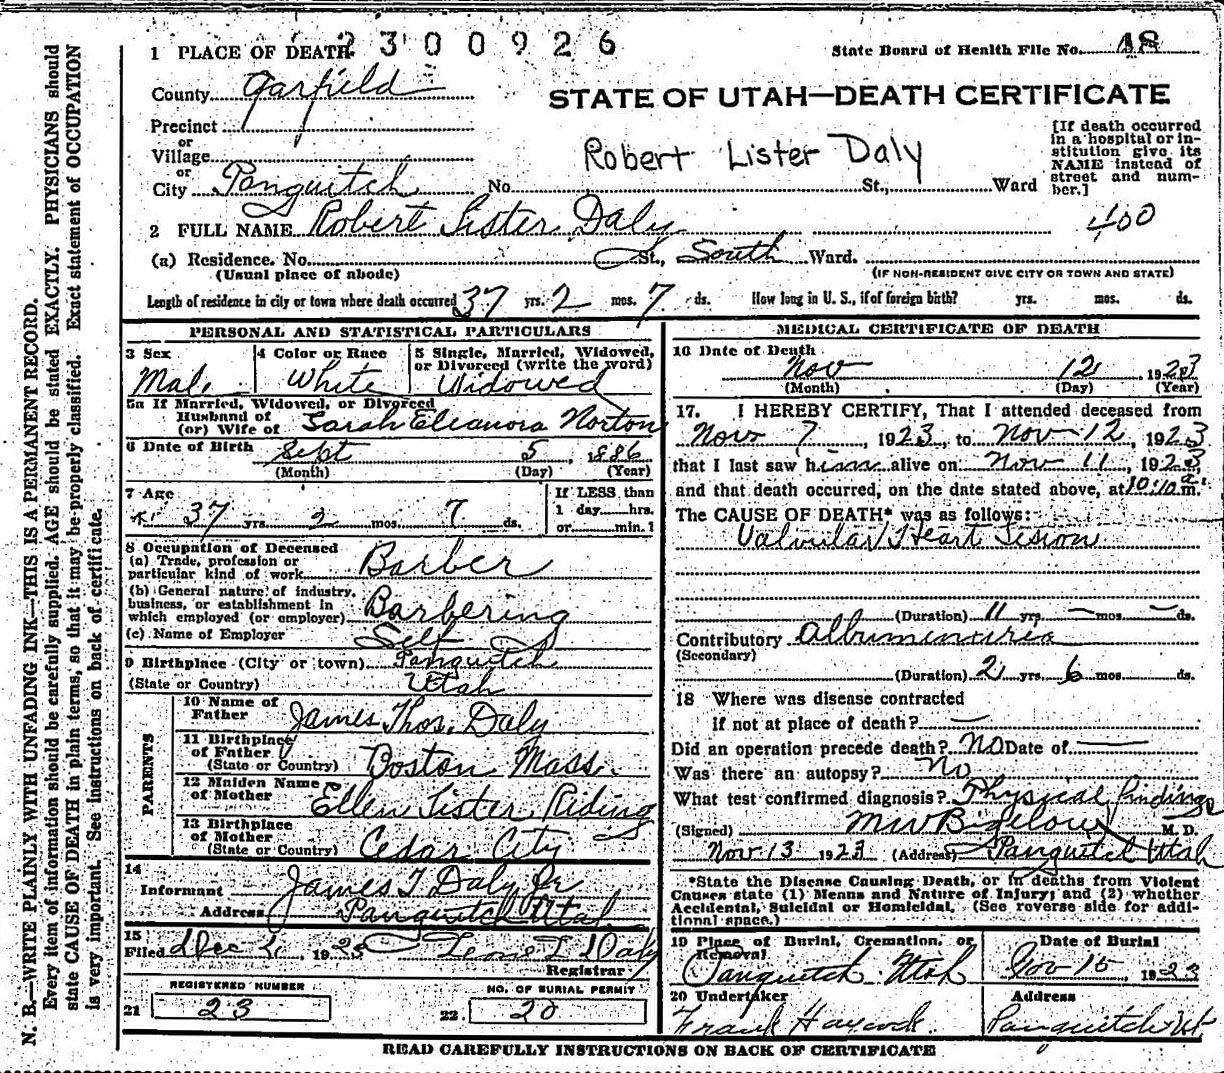 2300926
1 PLACE OF DEATH
State Board of Health File No. 48
County Garfield
STATE OF UTAH—DEATH CERTIFICATE
Precinct
or
Village
or
City Panguitch No. St., Ward
Robert Lister Daly
[If death occurred in a hospital or institution give its NAME instead of street and number.]
2 FULL NAME Robert Lister Daly
400
(a) Residence. No. St., South Ward.
(Usual place of abode)
(IF NON-RESIDENT GIVE CITY OR TOWN AND STATE)
Length of residence in city or town where death occurred 37 yrs. 2 mos. 7 ds. How long in U. S., if of foreign birth? yrs. mos. ds.
PERSONAL AND STATISTICAL PARTICULARS
3 Sex
Male
4 Color or Race
White
5 Single, Married, Widowed, or Divorced (write the word)
Widowed
5a If Married, Widowed, or Divorced
Husband of
(or) Wife of Sarah Eleanora Norton
6 Date of Birth Sept 5, 1886
(Month) (Day) (Year)
7 Age
37 yrs. 2 mos. 7 ds.
If LESS than
1 day hrs.
or min.
8 Occupation of Deceased
(a) Trade, profession or
particular kind of work Barber
(b) General nature of industry,
business, or establishment in
which employed (or employer) Barbering
(c) Name of Employer Self
9 Birthplace (City or town) Panguitch
(State or Country) Utah
PARENTS
10 Name of
Father James Thos. Daly
11 Birthplace
of Father
(State or Country) Boston Mass.
12 Maiden Name
of Mother Ellen Lister Riding
13 Birthplace
of Mother
(State or Country) Cedar City
14
Informant James T Daly Jr
Address Panguitch Utah
15
Filed Dec 1, 1923 Daly
Registrar
REGISTERED NUMBER
21 23
NO. OF BURIAL PERMIT
22 20
MEDICAL CERTIFICATE OF DEATH
16 Date of Death
Nov 12 1923
(Month) (Day) (Year)
17. I HEREBY CERTIFY, That I attended deceased from
Nov 7, 1923, to Nov 12, 1923
that I last saw him alive on Nov 11, 1923
and that death occurred, on the date stated above, at 10:10 a m.
The CAUSE OF DEATH* was as follows:
Valvular Heart Lesion
(Duration) 11 yrs. — mos. — ds.
Contributory Albumenuria
(Secondary)
(Duration) 2 yrs. 6 mos. ds.
18 Where was disease contracted
if not at place of death? —
Did an operation precede death? no Date of —
Was there an autopsy? No
What test confirmed diagnosis? Physical findings
(Signed) M W Bigelow M. D.
Nov 13 1923 (Address) Panguitch Utah
*State the Disease Causing Death, or in deaths from Violent
Causes state (1) Means and Nature of Injury; and (2) whether
Accidental, Suicidal or Homicidal. (See reverse side for addi-
tional space.)
19 Place of Burial, Cremation, or
Removal
Panguitch Utah
Date of Burial
Nov 15, 1923
20 Undertaker
Frank Haycock.
Address
Panguitch Ut
READ CAREFULLY INSTRUCTIONS ON BACK OF CERTIFICATE
N. B.—WRITE PLAINLY WITH UNFADING INK—THIS IS A PERMANENT RECORD.
Every item of information should be carefully supplied. AGE should be stated EXACTLY. PHYSICIANS should
state CAUSE OF DEATH in plain terms, so that it may be properly classified. Exact statement of OCCUPATION
is very important. See instructions on back of certificate.